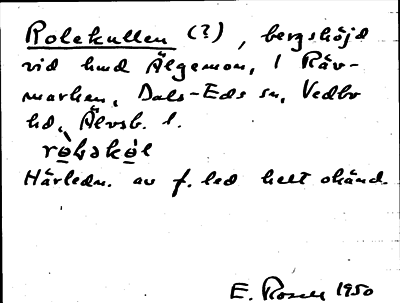 Rolekullen (?), bergshöjd
vid hmd Älgemon, i Räv-
marken, Dals-Eds sn, Vedbo
hd, Älvsb. l.
Härledn. av f. led helt okänd.
E. Rosell 1950